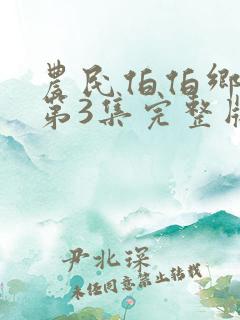 農民伯伯鄉
第3集完整版
尹北琛
未经同意禁止转载